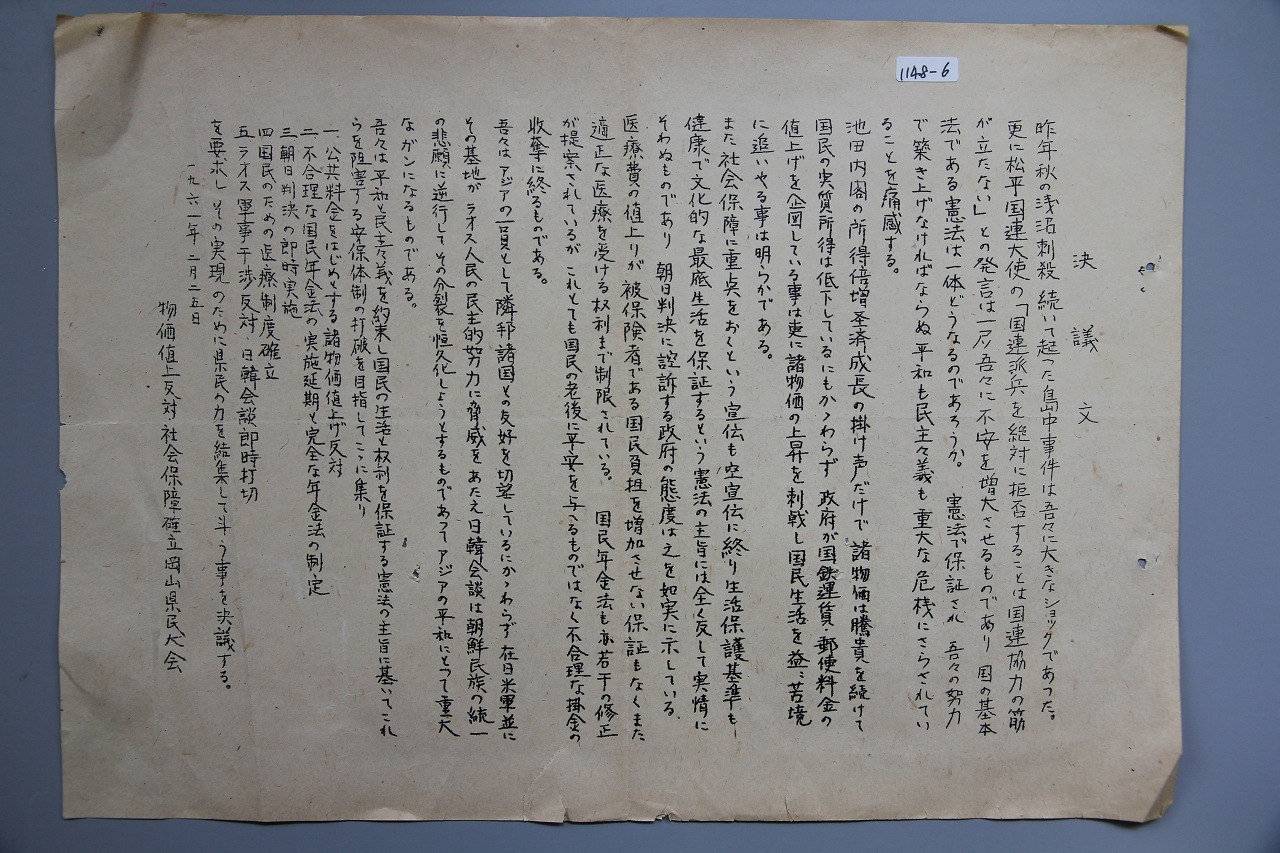 1148-6
決議文
昨年秋の浅沼刺殺 続いて起った島中事件は吾々に大きなショックであった。
更に松平国連大使の「国連派兵を絶対に拒否することは国連協力の筋
が立たない」との発言は一層吾々に不安を増大させるものであり 国の基本
法である憲法は一体どうなるのであろうか。 憲法で保証され 吾々の努力
で築き上げなければならぬ平和も民主々義も重大な危機にさらされてい
ることを痛感する。
池田内閣の所得倍増 経済成長の掛け声だけで諸物価は騰貴を続けて
国民の実質所得は低下しているにもかゝわらず 政府が国鉄運賃、郵便料金の
値上げを企図している事は更に諸物価の上昇を刺戟し国民生活を益々苦境
に追いやる事は明らかである。
また社会保障に重点をおくという宣伝も空宣伝に終り生活保護基準も
健康で文化的な最底生活を保証するという憲法の主旨には全く反して実情に
そわぬものであり 朝日判決に控訴する政府の態度は之を如実に示している。
医療費の値上りが被保険者である国民負担を増加させない保証もなくまた
適正な医療を受ける权利まで制限されている。 国民年金法も亦若干の修正
が提案されているが これとても国民の老後に平安を与へるものではなく不合理な掛金の
収奪に終るものである。
吾々はアジアの一員として隣邦諸国との友好を切望しているにかゝわらず 在日米軍並に
その基地が ラオス人民の民主的努力に脅威をあたえ日韓会談は朝鮮民族の統一
の悲願に逆行してその分裂を恒久化しようとするものであって アジアの平和にとって重大
なガンになるものである。
吾々は平和と民主々義を約束し国民の生活と权利を保証する憲法の主旨に基いてこれ
らを阻害する安保体制の打破を目指してこゝに集り
一、公共料金をはじめとする諸物価値上げ反対
二、不合理な国民年金法の実施延期と完全な年金法の制定
三 朝日判決の即時実施
四 国民のための医療制度確立
五 ラオス軍事干渉反対、日韓会談即時打切
を要求し その実現のために県民の力を結集して斗う事を決議する。
一九六一年二月二五日
物価値上反対 社会保障確立岡山県民大会